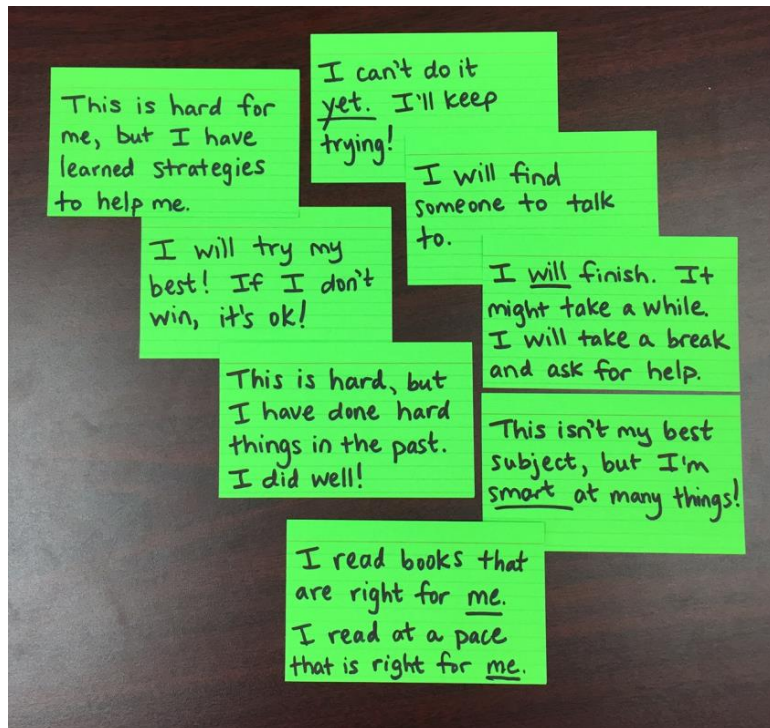 This is hard for
me, but I have
learned strategies
to help me.
I can't do it
yet. I'll keep
trying!
I will find
someone to talk
to.
I will try my
best! If I don't
win, it's ok!
I will finish. It
might take a while.
I will take a break
and ask for help.
This is hard, but
I have done hard
things in the past.
I did well!
This isn't my best
subject, but I'm
smart at many things!
I read books that
are right for me.
I read at a pace
that is right for me.